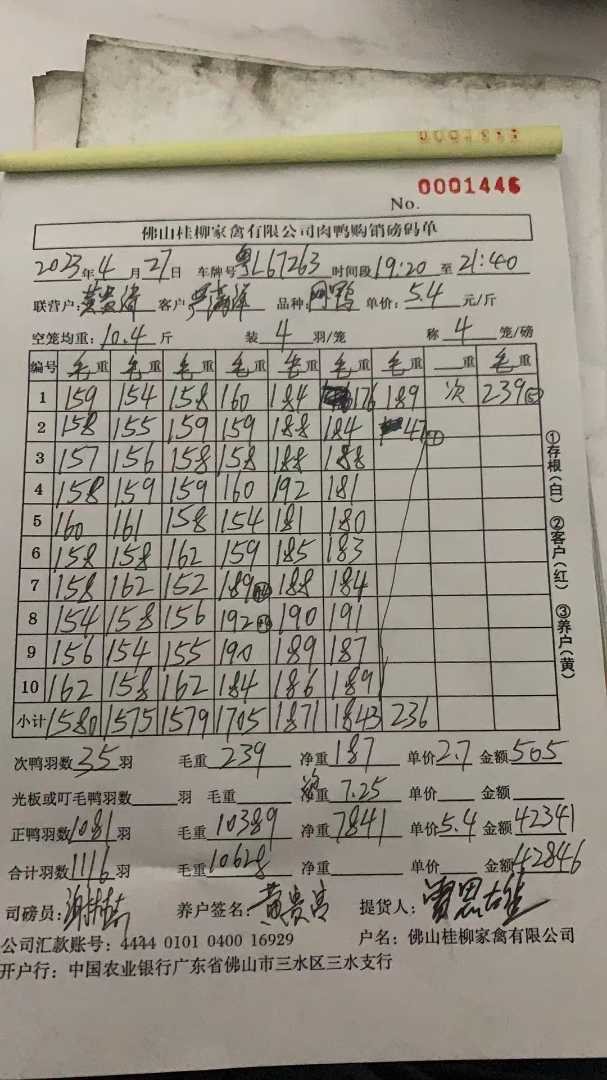 No. 0001446
佛山桂柳家禽有限公司肉鸭购销磅码单
2023年4月27日 车牌号粤L67263 时间段19:20至21:40
联营户: 客户: 品种: 鸭 单价:5.4元/斤
空笼均重:10.4斤 装4羽/笼 称4笼/磅
编号 毛重 毛重 毛重 毛重 毛重 毛重 毛重 重 毛重
1 159 154 158 160 184 176 189 次 239
2 158 155 159 159 188 184 47
3 157 156 158 158 188 188
4 158 159 159 160 192 181
5 160 161 158 154 181 180
6 158 158 162 159 185 183
7 158 162 152 189 188 184
8 154 158 156 192 190 191
9 156 154 155 190 189 187
10 162 158 162 184 186 189
小计 1580 1575 1579 1705 1871 1843 236
①存根(白) ②客户(红) ③养户(黄)
次鸭羽数35羽 毛重239 净重187 单价2.7 金额505
光板或叮毛鸭羽数 羽 毛重 净重7.25 单价 金额
正鸭羽数1081羽 毛重10389 净重7841 单价5.4 金额42341
合计羽数1116羽 毛重10628 净重 单价 金额42846
司磅员: 养户签名: 提货人:
公司汇款账号:4444 0101 0400 16929 户名:佛山桂柳家禽有限公司
开户行:中国农业银行广东省佛山市三水区三水支行